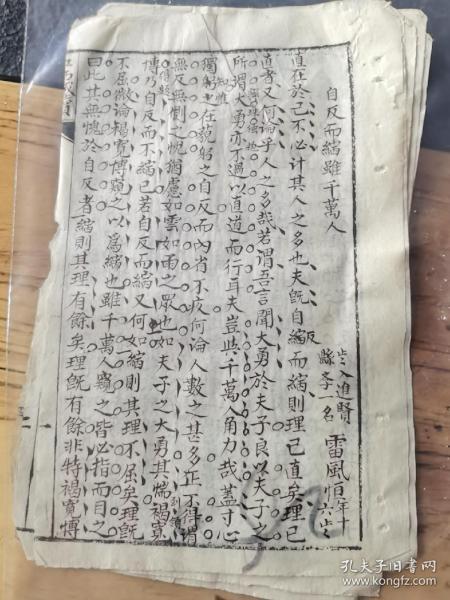 自反而縮雖千萬人
入進賢
縣李一名
雷風恒
年十六
直在於己不必計其人之多也夫旣自反而縮則理已直矣理已
直者又何論乎人之多哉若謂吾言聞大勇於夫子良以夫子之
所謂大勇亦不過以直道而行耳夫豈與千萬人角力哉蓋寸心
獨矢之在藐躬之自反而內省不疚何論人數之甚多正不得謂
無反無側之忱猶慮如雲如雨之眾也如夫子之大勇其惴褐寬
博乃自反而不縮已若自反而縮又何如縮則其理不屈矣理旣
不屈微論褐寬博窺之以爲縮也雖千萬人窺之皆必指而目之
曰此其無愧於自反者縮則其理有餘矣理旣有餘非特褐寬博
孔夫子旧书网
www.kongfz.com